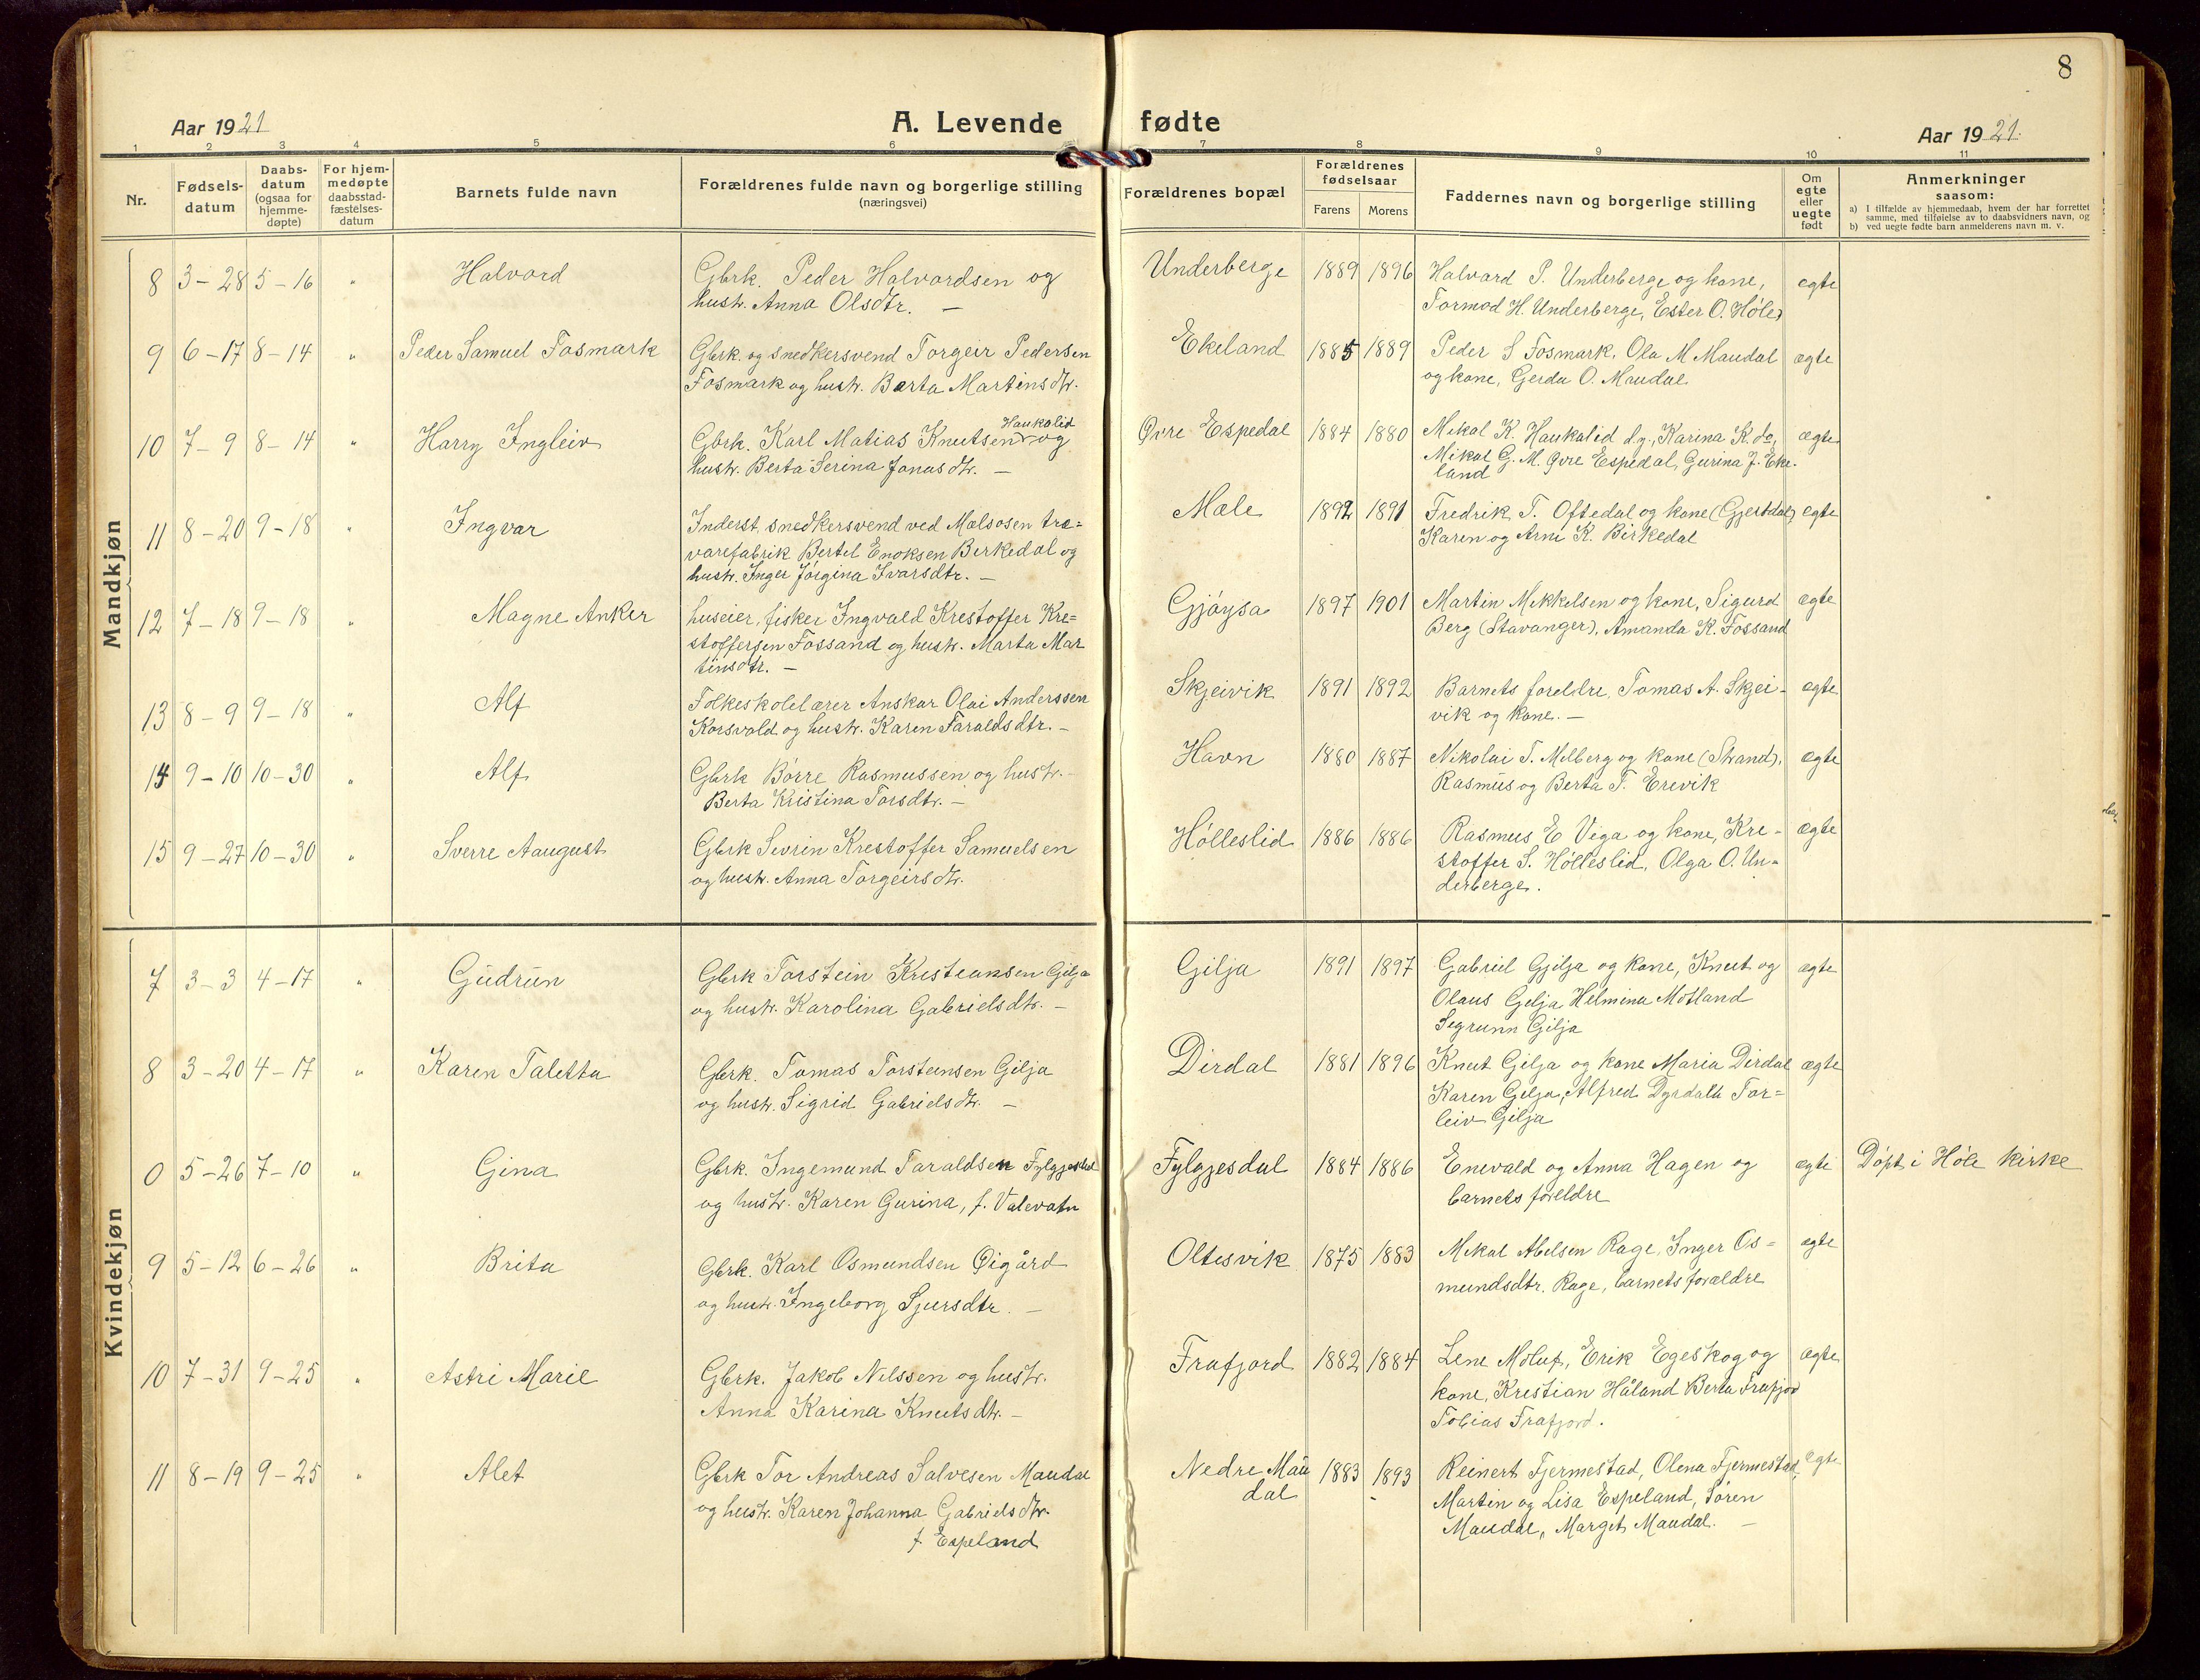 8
Aar 1921
A. Levende fødte
Aar 1921.
1 2 3 4 5 6 7 8 9 10 11
Nr.
Fødsels-
datum
Daabs-
datum
(ogsaa for
hjemme-
døpte)
For hjem-
medøpte
daabsstad-
fæstelses-
datum
Barnets fulde navn
Forældrenes fulde navn og borgerlige stilling
(næringsvei)
Forældrenes bopæl
Forældrenes
fødselsaar
Farens Morens
Faddernes navn og borgerlige stilling
Om
egte
eller
uegte
født
Anmerkninger
saasom:
a) I tilfælde av hjemmedaab, hvem der har forrettet
samme, med tilføielse av to daabsvidners navn, og
b) ved uegte fødte barn anmelderens navn m. v.
Mandkjøn
8 3-28 5-16 " Halvard Gbrk. Peder Halvardsen og Underberge 1889 1896 Halvard P. Underberge og kone, ægte
hustr. Anna Olsdtr. — Tormod H. Underberge, Ester O. Høle
9 6-17 8-14 " Peder Samuel Fosmark Gbrk. og snedkersvend Torgeir Pedersen Ekeland 1885 1889 Peder S Fosmark, Ola M Maudal ægte
Fosmark og hustr. Berta Martinsdtr. og kone, Gerda O. Maudal
10 7-9 8-14 " Harry Ingleiv Gbrk. Karl Matias Knutsen Haukalid og Øvre Espedal 1884 1880 Mikal K. Haukalid d.y., Karina K. do, ægte
hustr. Berta Serina Jonasdtr. — Mikal G. M. Øvre Espedal, Gurina J. Eke-
land
11 8-20 9-18 " Ingvar Inderst, snedkersvend ved Mælsosen træ= Mæle 1892 1891 Fredrik T. Oftedal og kone (Gjestdal) ægte
varefabrik Bertel Enoksen Birkedal og Karen og Arne K. Birkedal
hustr. Inger Jørgina Ivarsdtr. —
12 7-18 9-18 " Magne Anker huseier, fisker Ingvald Krestoffer Kre= Gjøysa 1897 1901 Martin Mikkelsen og kone, Sigurd ægte
stoffersen Fossand og hustr. Marta Mar Berg (Stavanger), Amanda K. Fossand
tinsdtr. —
13 8-9 9-18 " Alf Folkeskolelærer Anskar Olai Anderssen Skjeivik 1891 1892 Barnets foreldre, Tomas A. Skjei- ægte
Korsvald og hustr. Karen Taraldsdtr. — vik og kone. —
14 9-10 10-30 " Alf Gbrk Børre Rasmussen og hustr. Havn 1880 1887 Nikolai T. Melberg og kone (Strand), ægte
Berta Kristina Torsdtr. — Rasmus og Berta T. Erevik
15 9-27 10-30 " Sverre Aaugust Gbrk Sevrin Krestoffer Samuelsen Hølleslid 1886 1886 Rasmus E Viga og kone, Kre- ægte
og hustr. Anna Torgeirsdtr. stoffer S. Hølleslid, Olga O. Un-
derberge.
Kvindekjøn
7 3-3 4-17 " Gudrun Gbrk Torstein Kristiansen Gilja Gilja 1891 1897 Gabriel Gjilja og kone, Knut og ægte
og hustr. Karolina Gabrielsdtr. — Olaus Gilja Helmina Motland
Segrunn Gilja
8 3-20 4-17 " Karen Taletta Gbrk. Tomas Torsteinsen Gilja Dirdal 1881 1896 Knut Gilja og kone Maria Dirdal ægte
og hustr. Sigrid Gabrielsdtr. — Karen Gilja, Alfred Dyrdalh Tor=
leiv Gilja
0 5-26 7-10 " Gina Gbrk. Ingemund Taraldsen Fylgjesdal Fylgjesdal 1884 1886 Enevald og Anna Hagen og ægte Døpt i Høle kirke
og hustr. Karen Gurina, f. Valevatn barnets foreldre
9 5-12 6-26 " Brita Gbrk. Karl Osmundsen Øigård Oltesvik 1875 1883 Mikal Abelsen Rage, Inger Os= ægte
og hustr. Ingeborg Sjursdtr. — mundsdtr. Rage, barnets forældre
10 7-31 9-25 " Astri Marie Gbrk. Jakob Nilssen og hustr. Frafjord 1882 1884 Lene Moluf, Erik Egeskog og ægte
Anna Karina Knutsdtr. — kone, Kristian Håland Berta Frafjor
Tobias Frafjord.
11 8-19 9-25 " Alet Gbrk Tor Andreas Salvesen Maudal Nedre Mau 1883 1893 Reinert Fjermestad, Olena Fjermestad, Egte
og hustr. Karen Johanna Gabrielsdtr. dal Martin og Lisa Espeland, Søren
f. Espeland Maudal, Marget Maudal. —